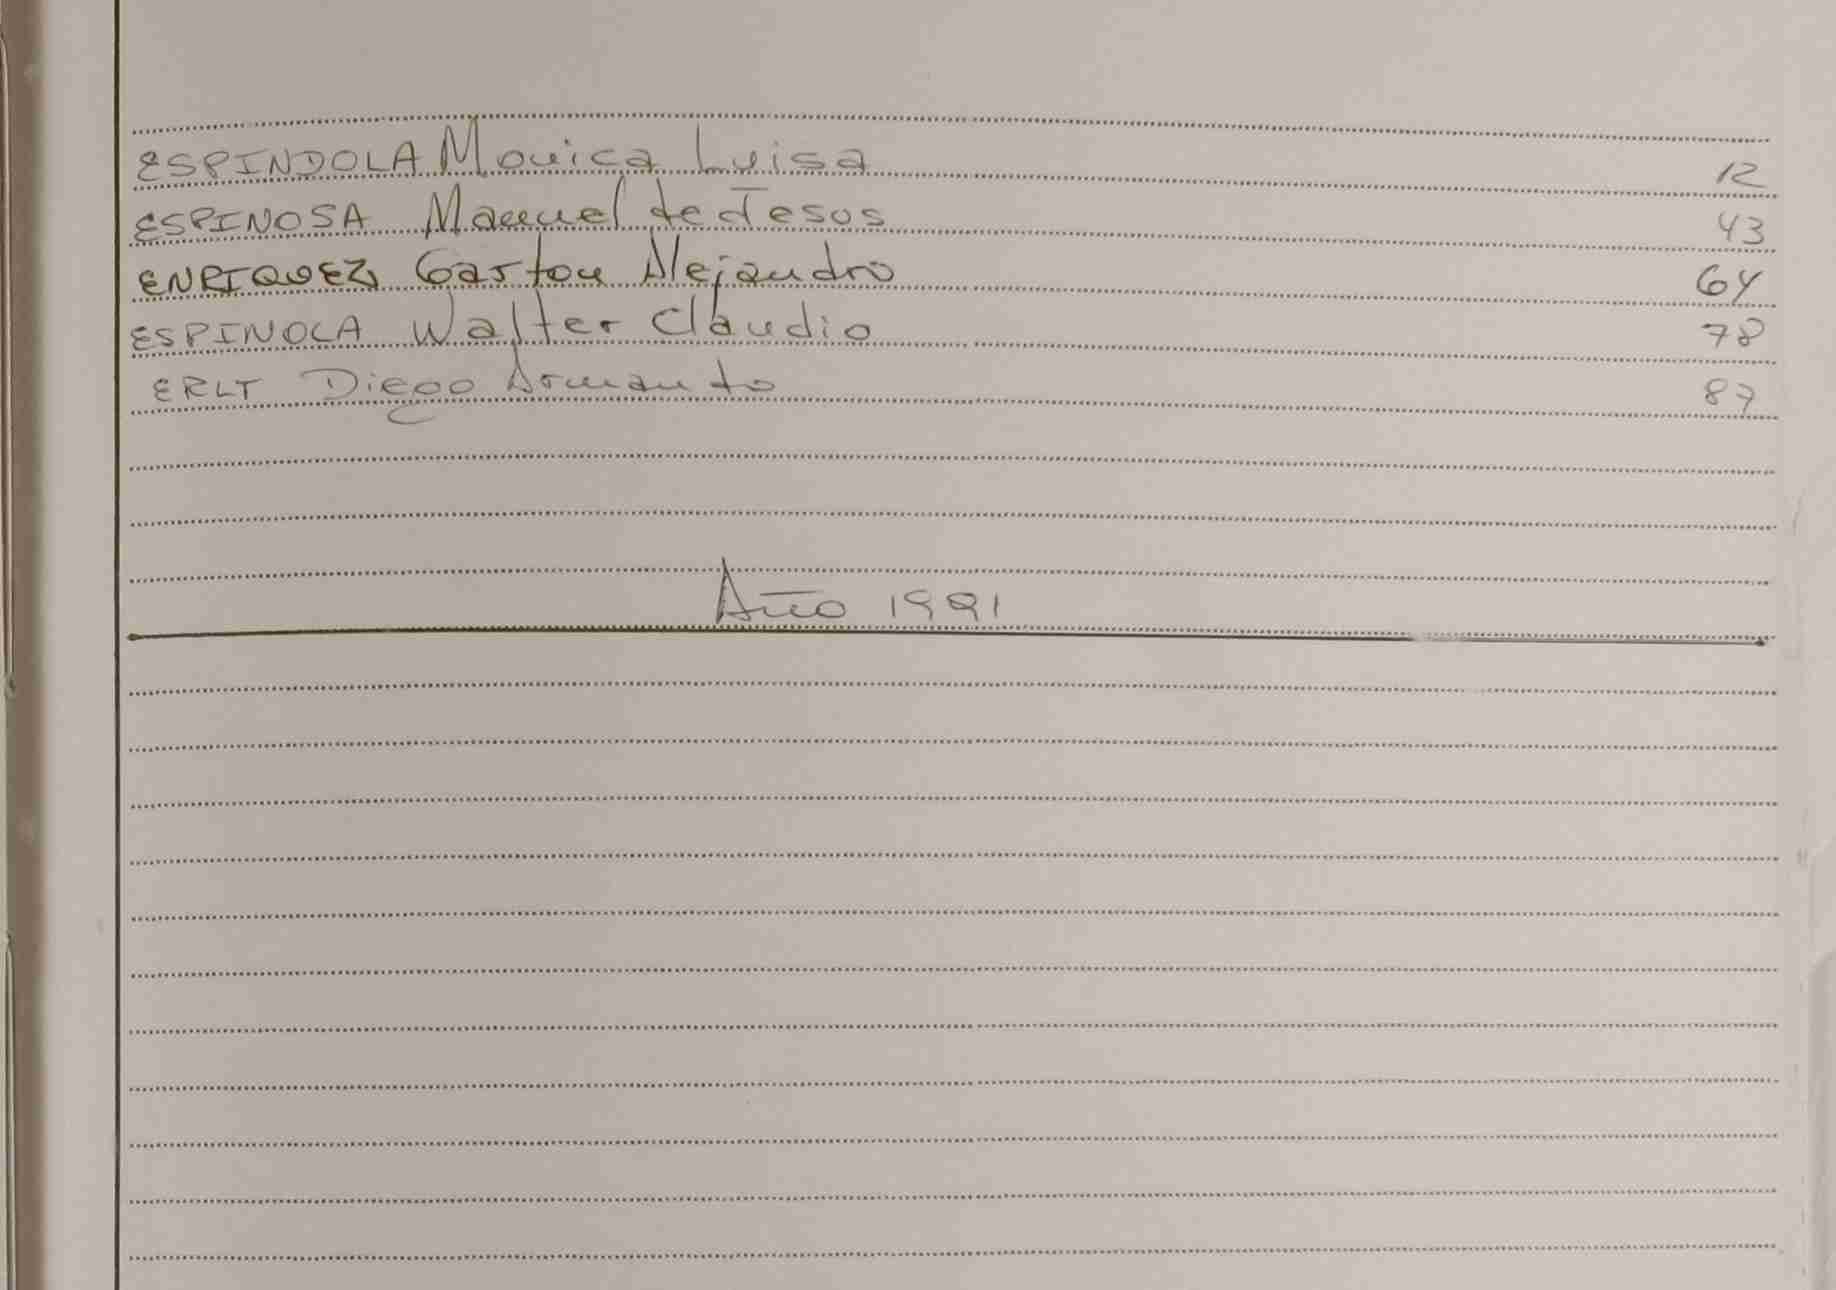 ESPINDOLA Monica Luisa 12
ESPINOSA Manuel de Jesus 43
ENRIQUEZ Gaston Alejandro 64
ESPINOLA Walter Claudio 78
ERLT Diego Armando 87
Año 1991